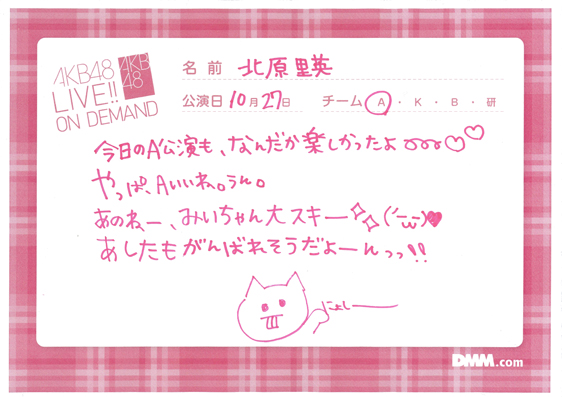 AKB48
LIVE!!
ON DEMAND
AKB
48
名前 北原里英
公演日 10月27日 チーム A・K・B・研
今日のA公演も、なんだか楽しかったよ♡♡
やっぱ、Aいいね。うん。
あのねー、みぃちゃん大スキー
あしたもがんばれそうだよーんっっ!!
にょしー
DMM.com